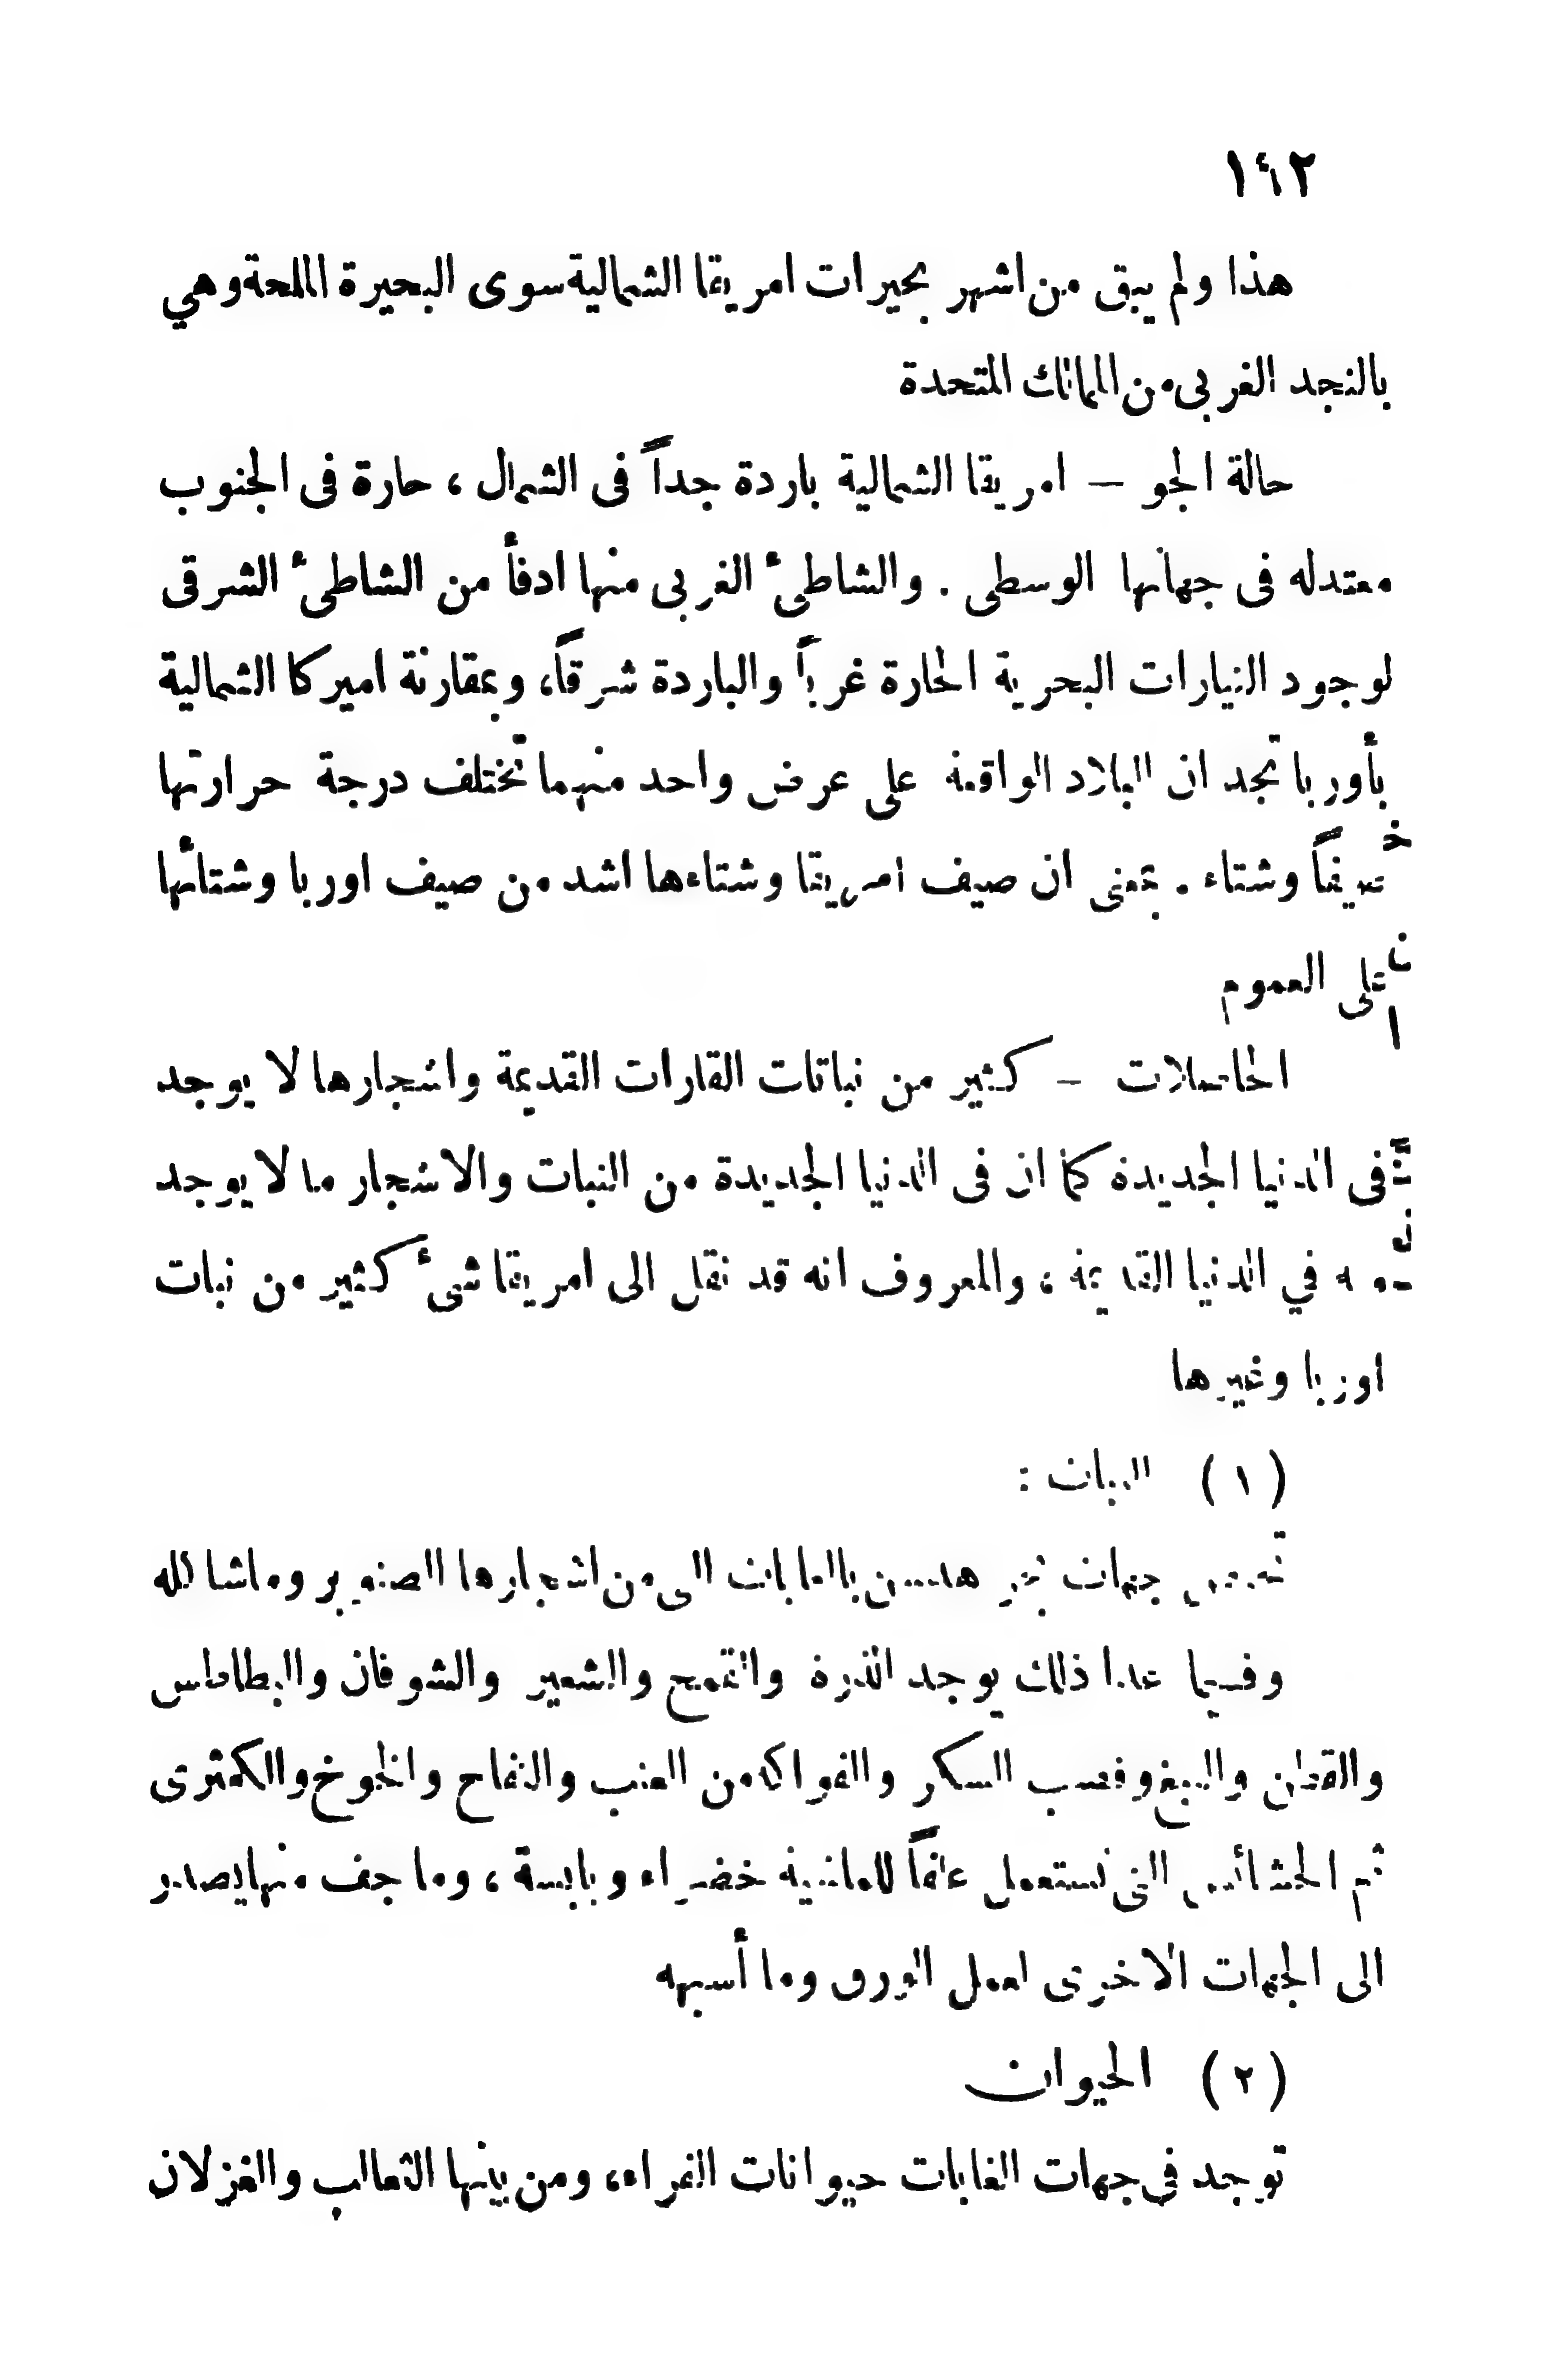 ١٤٢
هذا ولم يبق من اشهر بحيرات امريقا الشمالية سوى البحيرة المالحة وهي
بالنجد الغربى من الممالك المتحدة
حالة الجو — امريقا الشمالية باردة جداً فى الشمال ، حارة فى الجنوب
معتدله فى جهاتها الوسطى . والشاطىء الغربى منها ادفأ من الشاطىء الشرقى
لوجود التيارات البحرية الحارة غرباً والباردة شرقاً، وبمقارنة اميركا الشمالية
بأوربا تجد ان البلاد الواقعة على عرض واحد منهما تختلف درجة حرارتها
صيفاً وشتاء . بمعنى ان صيف امريقا وشتاءها اشد من صيف اوربا وشتائها
على العموم
الحاصلات — كثير من نباتات القارات القديمة واشجارها لا يوجد
فى الدنيا الجديدة كما ان فى الدنيا الجديدة من النبات والاشجار ما لا يوجد
فى الدنيا القديمة ، والمعروف انه قد نقل الى امريقا شىء كثير من نبات
اوربا وغيرها
( ١ ) النبات :
جهات هدسن بالغابات التى من اشجارها الصنوبر وماشا كله
وفيما عدا ذلك يوجد الذرة والقمح والشعير والشوفان والبطاطس
والقطن والتبغ وقصب السكر والفواكه من العنب والتفاح والخوخ والكمثرى
ثم الحشائش التى تستعمل علفاً للماشية خضراء ويابسة ، وما جف منها يصدر
الى الجهات الاخرى لعمل الورق وما أشبهه
( ٢ ) الحيوان
توجد فى جهات الغابات حيوانات الفراء، ومن بينها الثعالب والغزلان